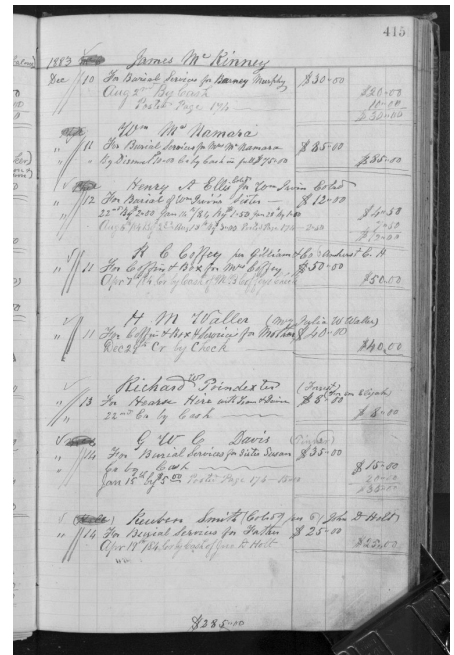 415
1883 James McKinney
Dec 10 For Burial Services for Barney Murphy $30-00
Aug 2nd By Cash $20-00
Poster Page 174 10-00
$30-00
Wm McNamara
" 11 For Burial Services for Mr McNamara $85-00
" By Discount 10-00 Cr by Cash in full $75-00 $85-00
Henry A Ellis for Wm Irvin Cold
" 12 For Burial of Wm Irvins Sister $12-00
22nd By 2-00 Jan 14th/84 By 1-50 Jan 28 By 1-00 $4-50
$12-00
H C Coffey per Gilliam & Co Amherst C. H
" 11 For Coffin & Box for Mrs Coffey $50-00
Apr 7th/84 Cr by Cash of $50-00
H M Waller (Mrs Julia W Waller)
" 11 For Coffin & Box & Service for Mother $40-00
Dec 27th Cr by Check $40.00
Richard Poindexter
" 13 For Hearse Hire $8-00
22nd Cr by Cash $8-00
G W C Davis
" 14 For Burial Services for Sister Susan $35-00
" Cr by Cash $15-00
Jan 15th by $5.00 Poster Page 176 - 15-00 20-00
$35-00
Reuben Smith (Cold) per John D Holt)
" 14 For Burial Services for Father $25-00
Apr 19th/84 Cr by Cash of Jno D Holt $25-00
$285-00